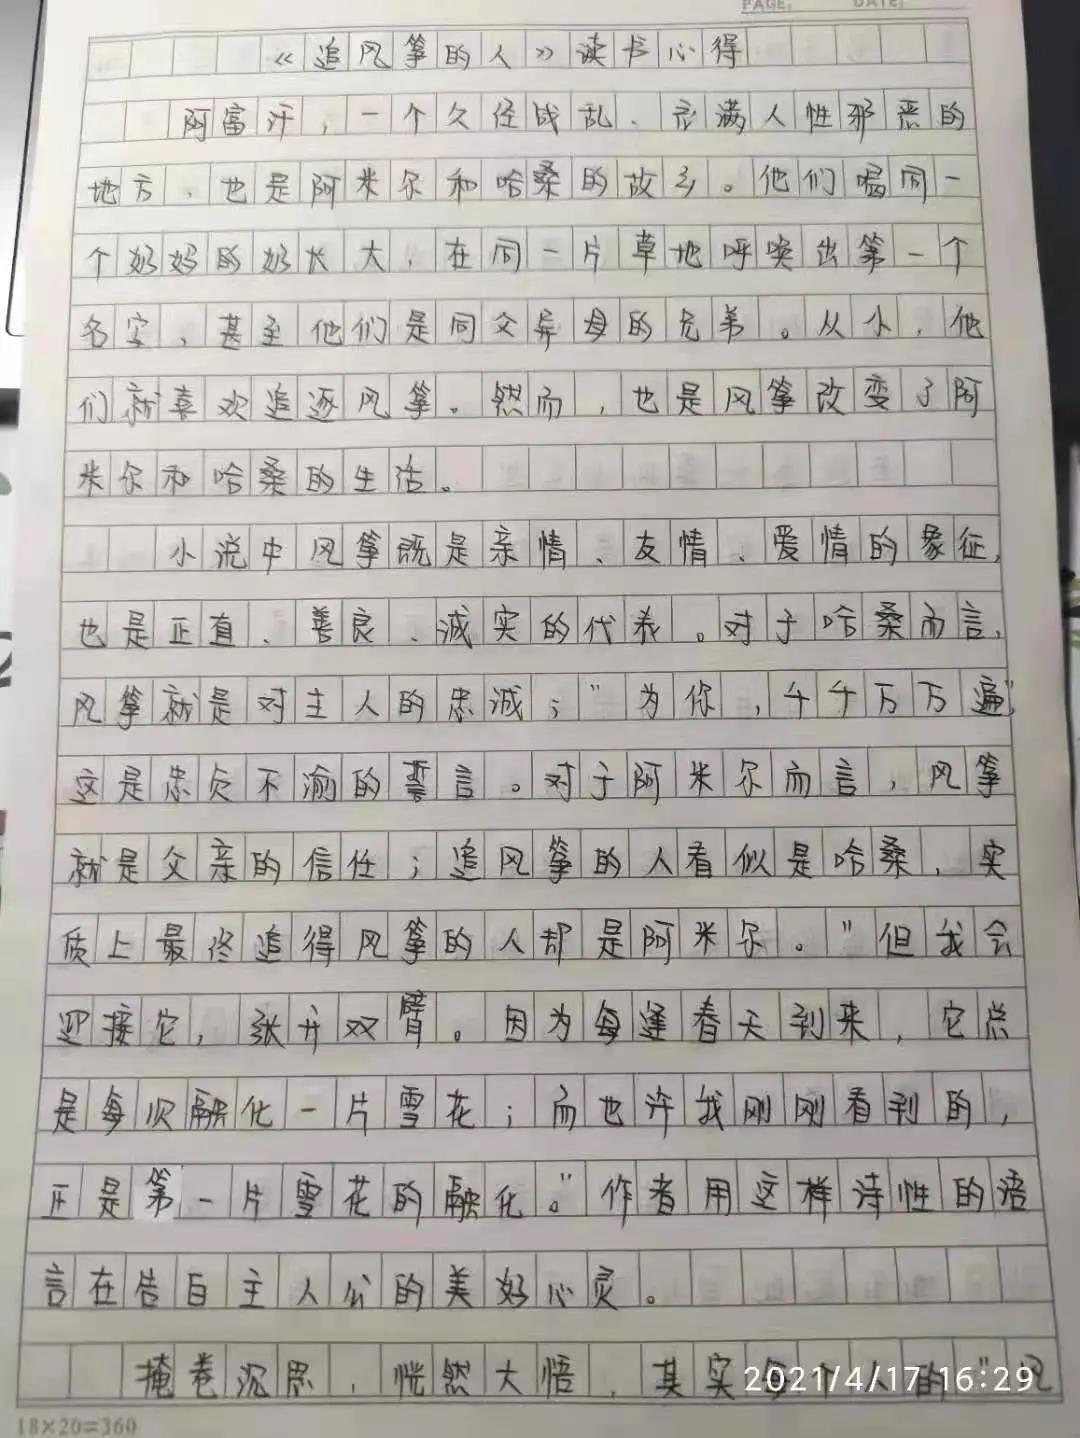 PAGE: DATE:
《追风筝的人》读书心得
阿富汗，一个久经战乱、充满人性邪恶的
地方，也是阿米尔和哈桑的故乡。他们喝同一
个奶妈的奶长大，在同一片草地呼唤出第一个
名字，甚至他们是同父异母的兄弟。从小，他
们就喜欢追逐风筝。然而，也是风筝改变了阿
米尔和哈桑的生活。
小说中风筝既是亲情、友情、爱情的象征，
也是正直、善良、诚实的代表。对于哈桑而言，
风筝就是对主人的忠诚；"为你，千千万万遍"
这是忠贞不渝的誓言。对于阿米尔而言，风筝
就是父亲的信任；追风筝的人看似是哈桑，实
质上最终追得风筝的人却是阿米尔。"但我会
迎接它，张开双臂。因为每逢春天到来，它总
是每次融化一片雪花；而也许我刚刚看到的，
正是第一片雪花的融化。"作者用这样诗性的语
言在告白主人公的美好心灵。
掩卷沉思，恍然大悟，其实每个人的"风
2021/4/17 16:29
18×20=360